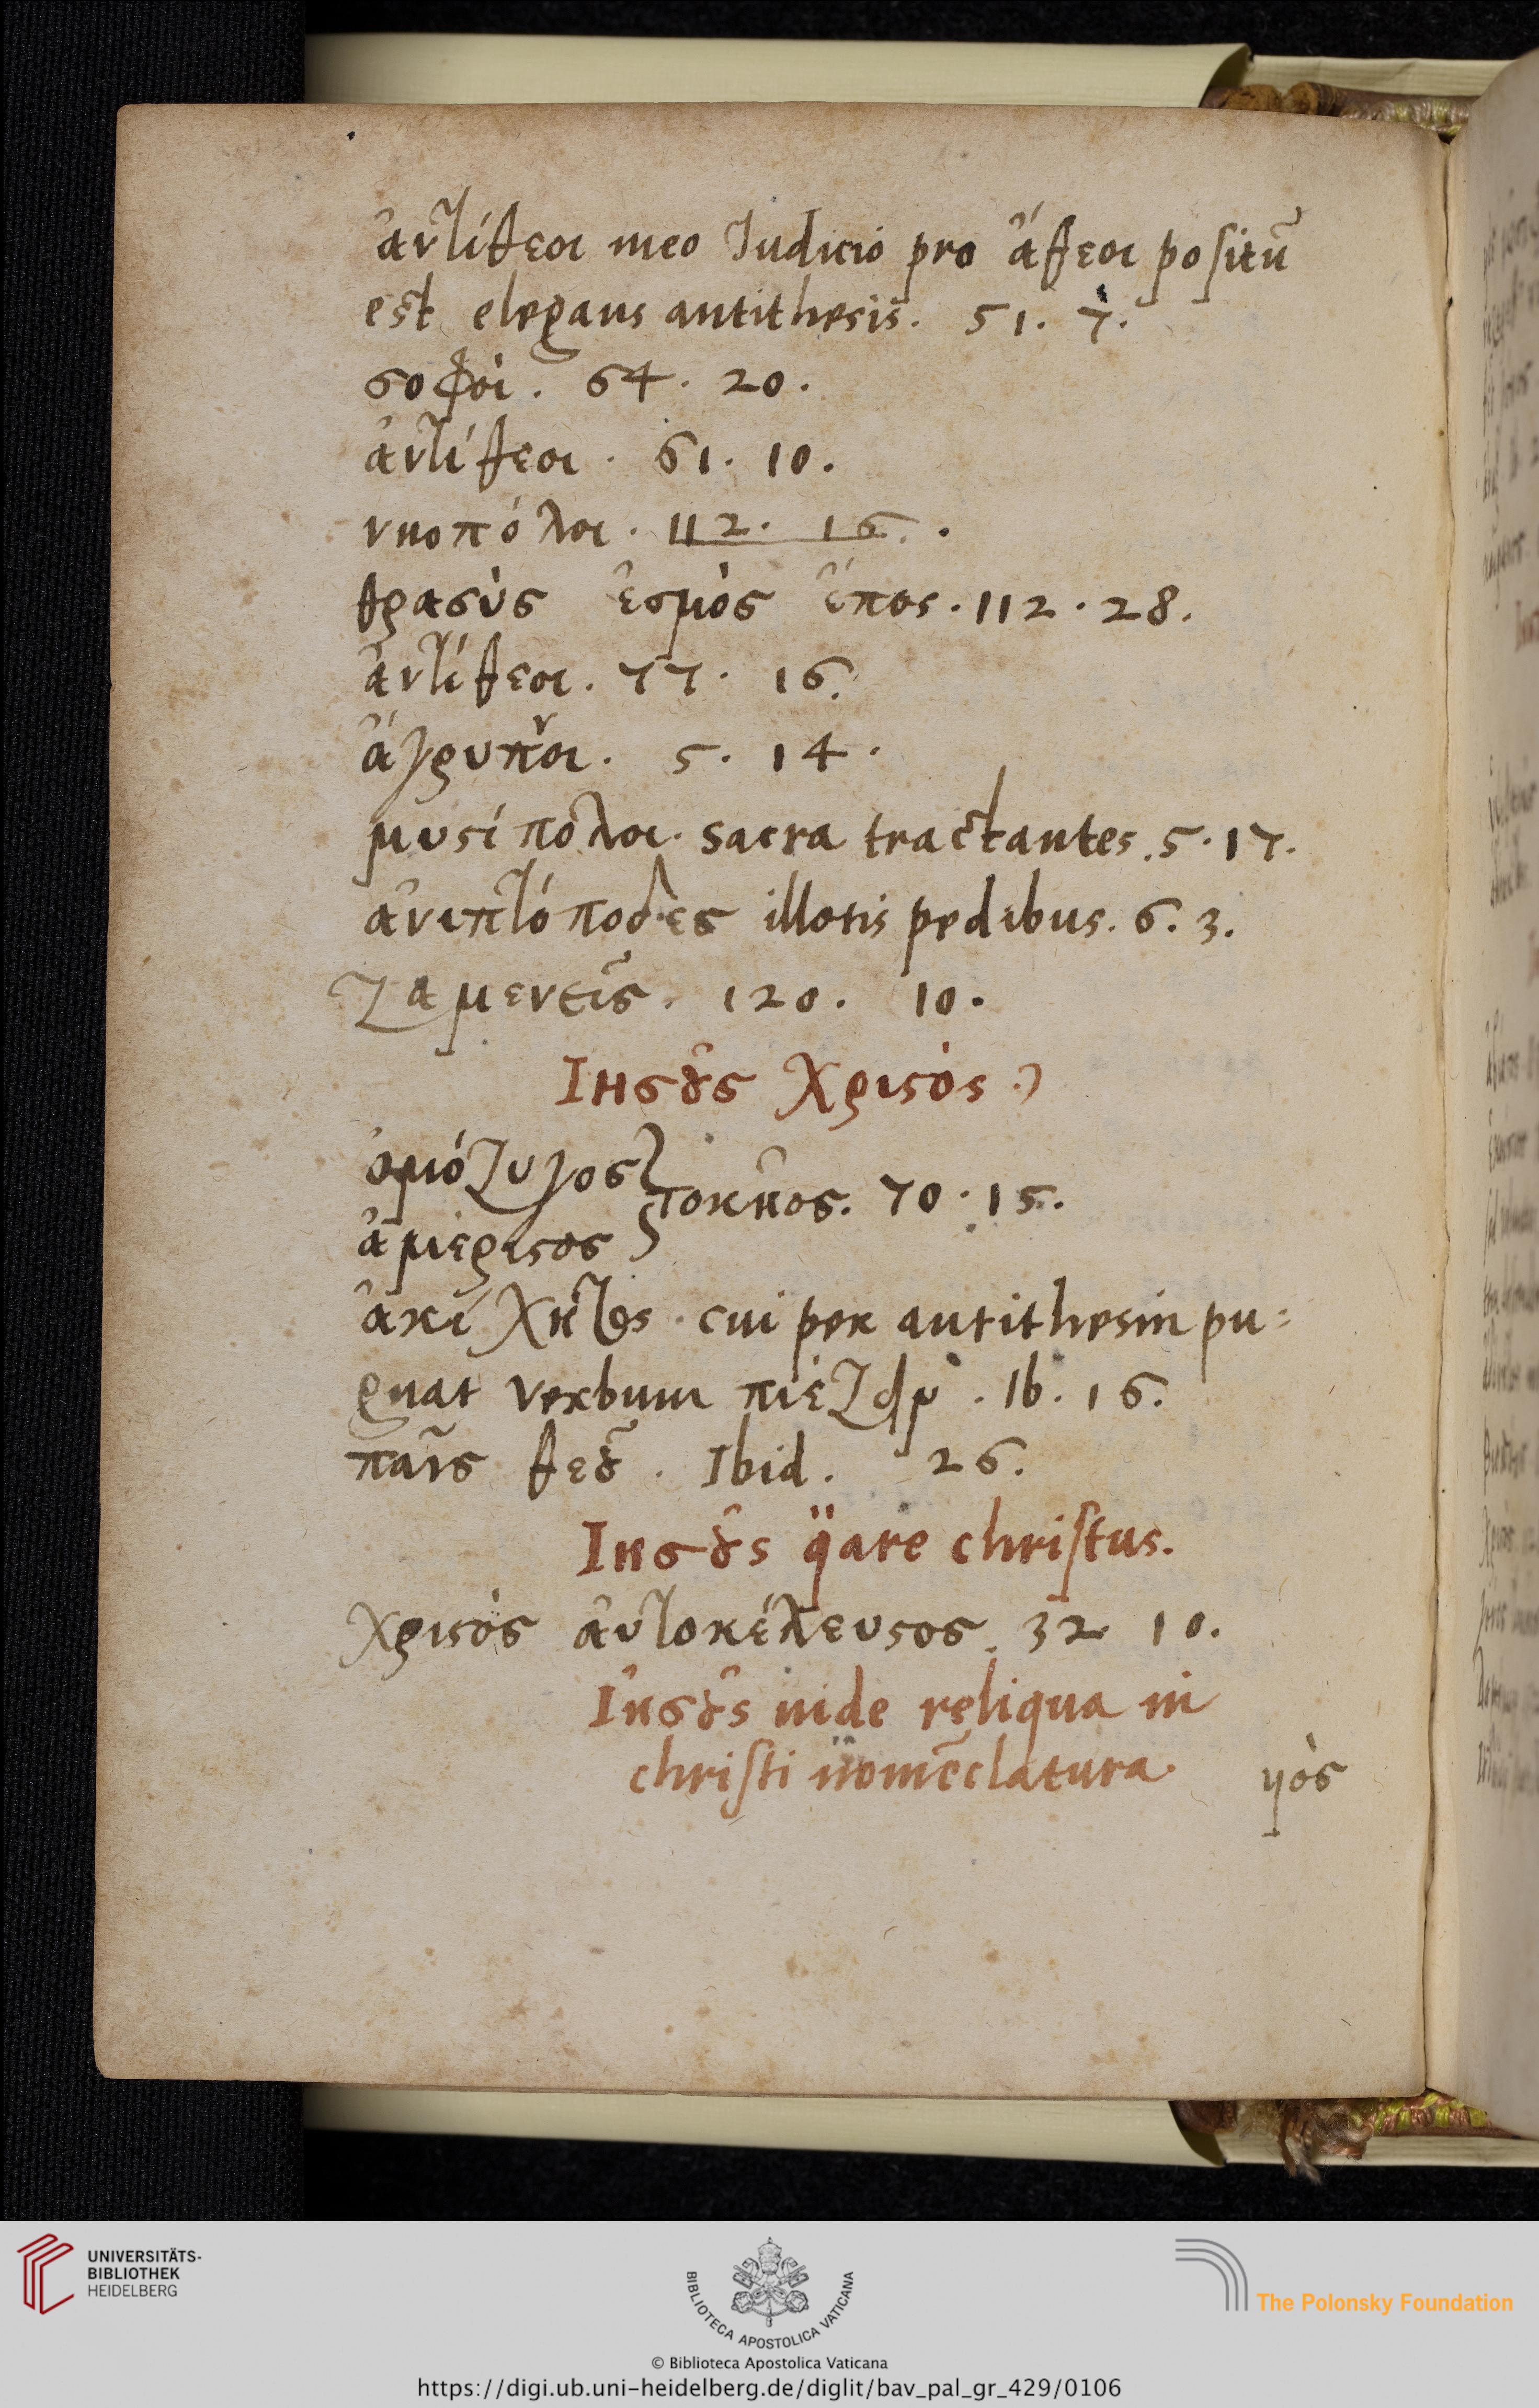 ἀντίθεοι meo Iudicio pro ἄθεοι positū
est elegans antithesis. 51. 7.
σοφοὶ. 64. 20.
ἀντίθεοι. 61. 10.
νηοπόλοι. 112. 16.
θρασὺς ἐσμὸς ἔπος. 112. 28.
ἀντίθεοι. 77. 16.
ἄγρυπνοι. 5. 14.
μυϛιπόλοι. sacra tractantes. 5. 17.
ἀνιπτόποδες illotis pedibus. 6. 3.
Ζαμενεῖς. 120. 10.
Ιησοῦς Χριϛὸς
ὁμόζυγος
τοκῆος. 70. 15.
ἀμέριϛος
ἀκίχητος. cui per antithesin pu=
gnat verbum . Ib. 16.
παῖς θεοῦ. Ibid. 26.
Ιησοῦς q̈are christus.
Χριϛὸς αὐτοκέλευϛος. 32 10.
Ἰησοῦς inde reliqua in
christi nomēclatura. γὸς
UNIVERSITÄTS-
BIBLIOTHEK
HEIDELBERG
BIBLIOTECA APOSTOLICA VATICANA
The Polonsky Foundation
© Biblioteca Apostolica Vaticana
https://digi.ub.uni-heidelberg.de/diglit/bav_pal_gr_429/0106